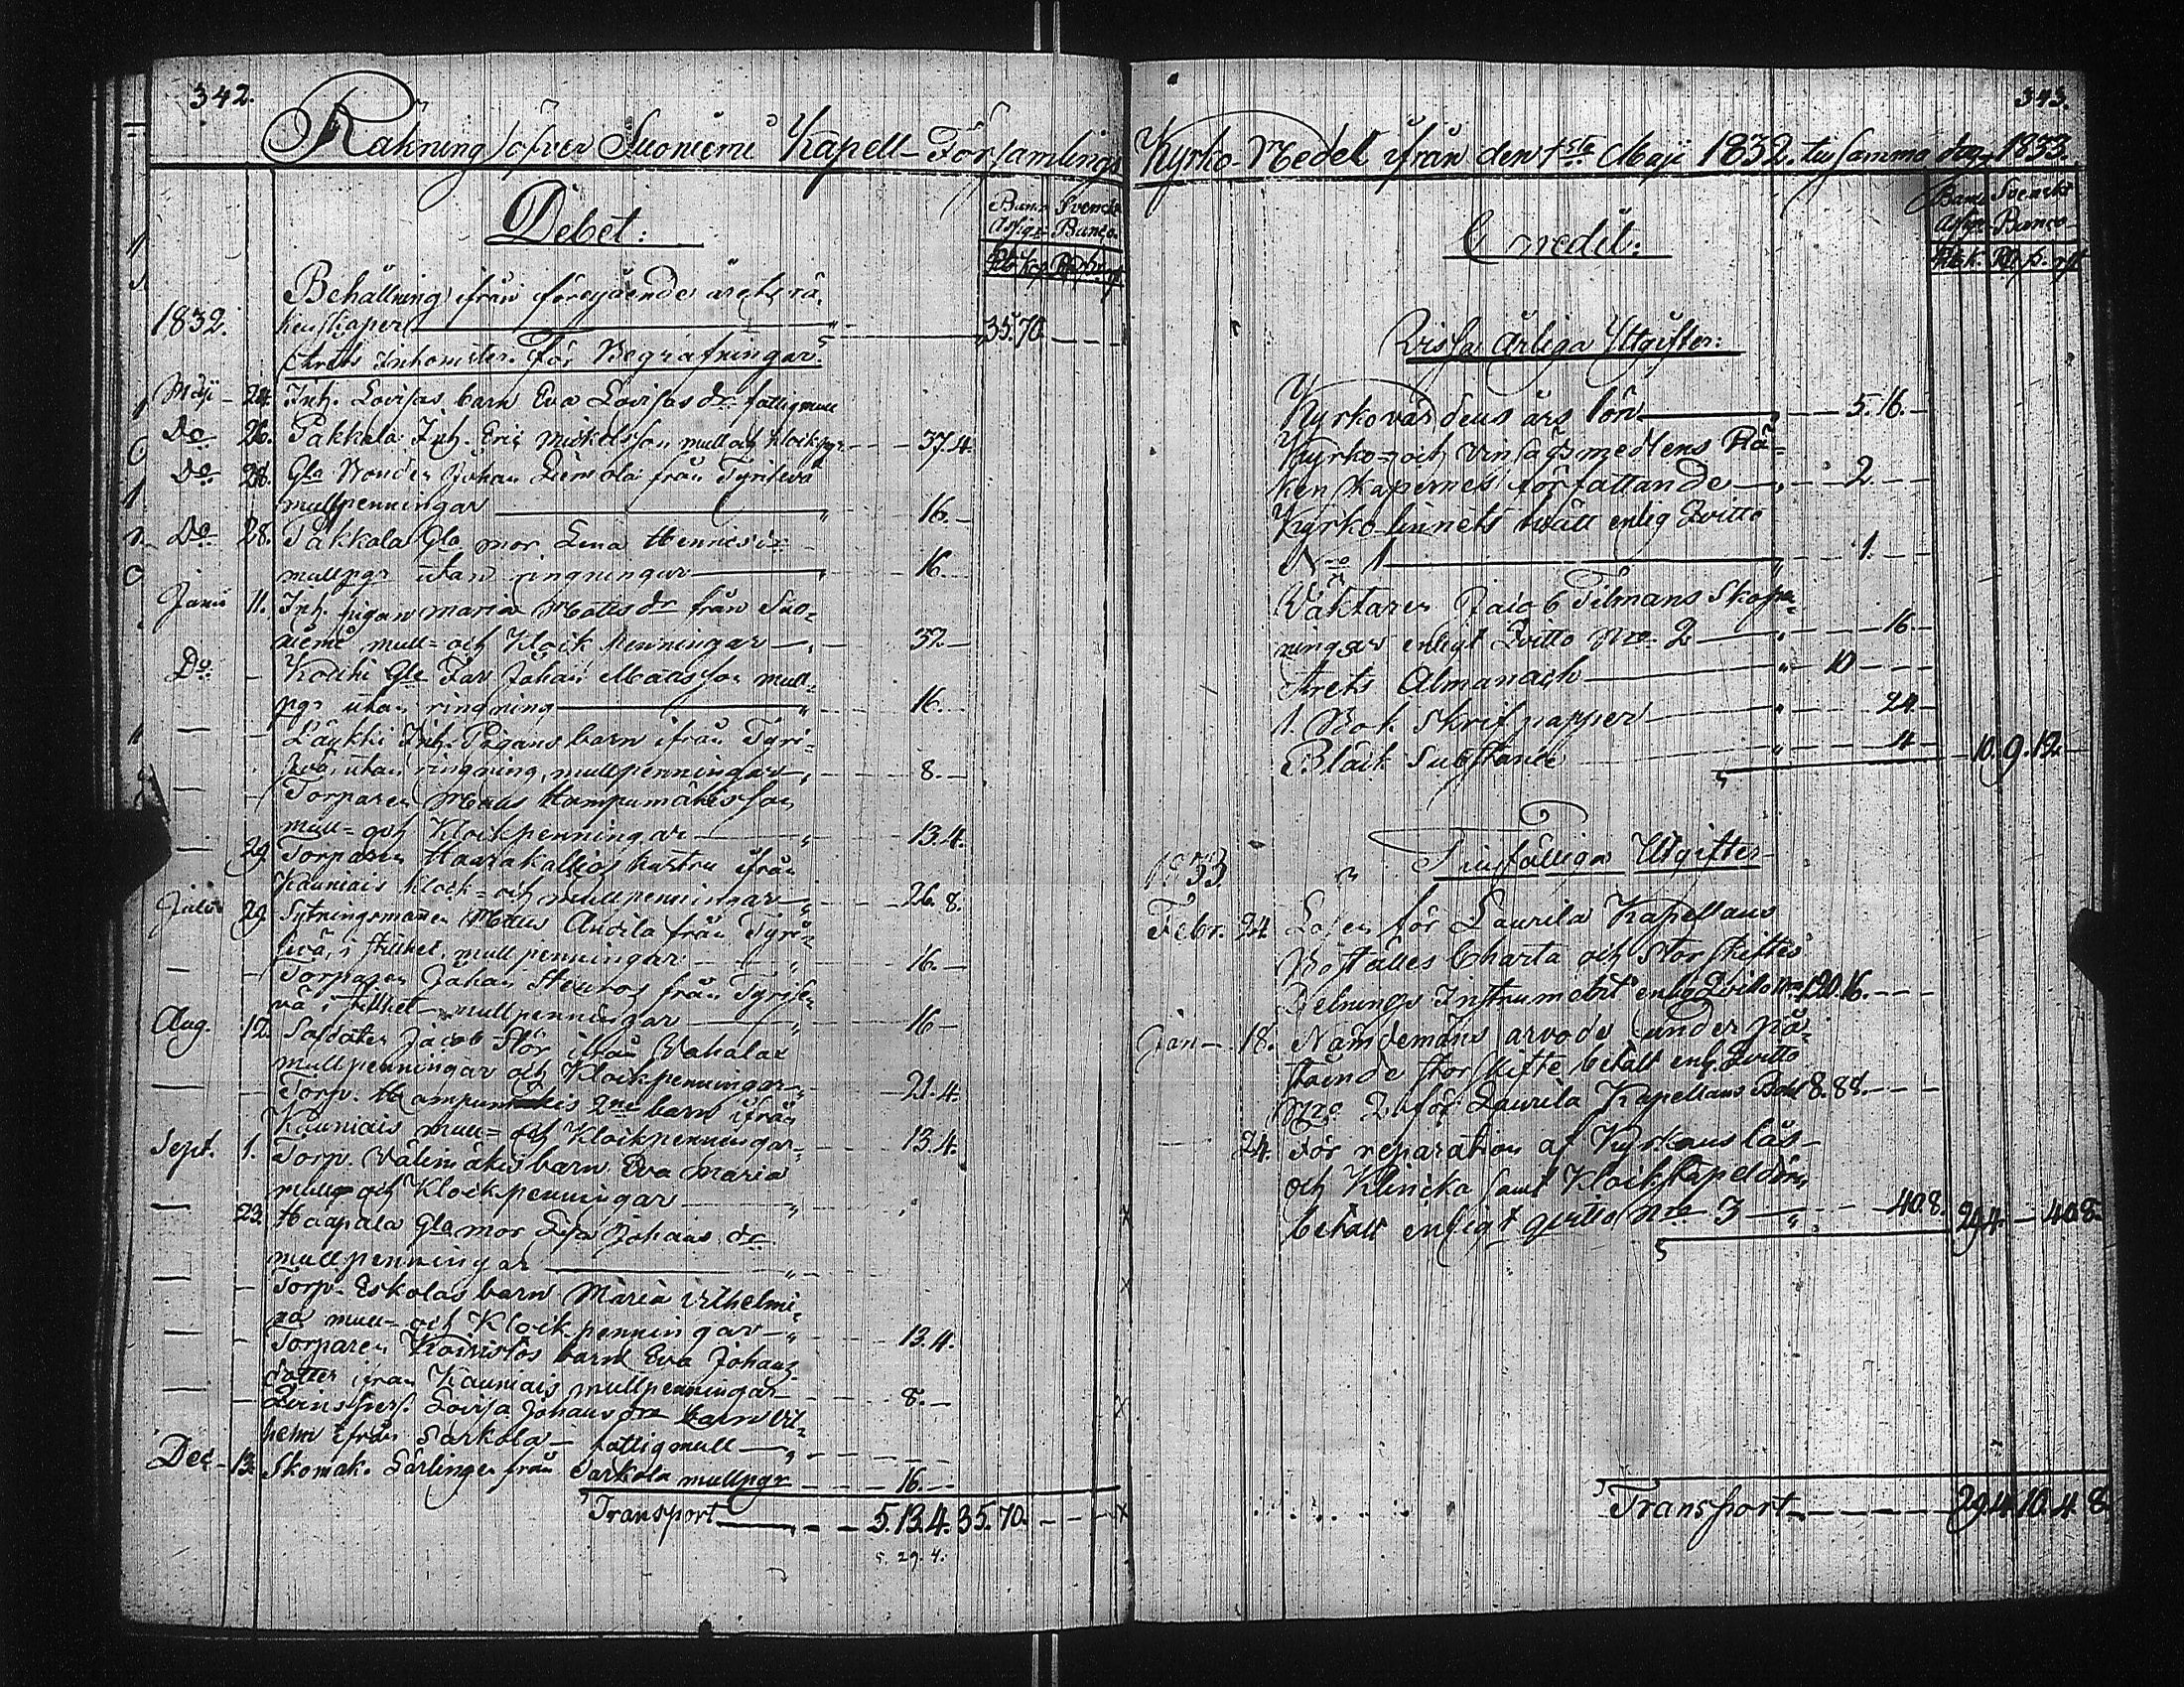 342.
Räkning öfver Suoniemi Kapell-Församlings
Debet:
Banco Svenska
Assign. Banco.
Behållning ifrån föregående årets rä,
1832. kenskaper 35.70.
Årets Inkomster. För Begrafningar.
Maji 24. Inh. Lovisas barn Eva Lovisas dr fattigmull
Do 26. Pakkala Inh. Eric Mickelsson mull och klockpgr 37.4.
Do 28. Gla Bonden Johan Liimola från Tyrisevä
mullpenningar 16.
Do 28. Pakkala Gla mor Lena Henricsdr
mullpgr utan ringningar 16.
Junii 11. Inh. pigan Maria Mattsdr från Suo-
niemi mull- och Klock Penningar 32.
Do Gla Far Johan Mattsson mull-
pgr utan ringning 16.
Inh. Pigans barn ifrån Tyri-
sevä, utan ringning, mullpenningar 8.
Torparen Matts Hampumäkis son
mull- och Klockpenningar 13.4.
29 Torparen hustru ifrån
Kauniais klock- och mullpenningar 26.8.
Julii 29. Sytningsmannen Matts Anttila från Tyri-
sevä, i stillhet, mullpenningar 16.
Torparen Johan från Tyrise-
vä i stillhet mullpenningar 16
Aug. 12. Soldaten Jacob Stör ifrån Vahalax
mullpenningar och Klockpenningar 21.4.
Torp. Hampumäkis 2ne barn ifrån
Kauniais mull- och Klockpenningar 13.4.
Sept. 1. Torp. Välimäkis barn Eva Maria
mull och Klockpenningar
23. Haapala Gla mor Lisa Johans dr
mullpenningar
Torp. Eskolas barn Maria Vilhelmi-
na mull- och Klock penningar 13.4.
Torparen Koivistos barn Eva Johans
dotter ifrån Kauniais mullpenningar 8.
Qvinspers. Lovisa Johans dra barn Vil-
helm ifrån Sarkola fattigmull
Dec. 13. Skomak. Särlingen från Sarkola mullpgr 16.
Transport 5.13.4. 35.70.
5. 29. 4.
343.
Kyrko-Medel ifrån den 1sta Maji 1832. till samma dag 1833.
Credit:
Banco Svenska
Assign. Banco
Vissa Årliga Utgifter:
Kyrkovärdens års lön 5.16.
Kyrko- och Vinsädsmedlens Rä-
kenskapernes författande 2
Kyrko-linnets tvätt enlig Qvitto
No 1 1.
Väktaren Jacob Tilmans Skopen-
ningar enligt Qvitto No 2 16.
Årets Almanach 10
1. Bok Skrifpapper 24.
Bläck Substance 4 10.9.12.
1833. Tillfälliga Utgifter
Febr. 24. Lösen för Laurila Kapellans
Boställes Charta och Storskiftes
Delnings Instrument enlig Qvitto No 1 20.16.
Jan. 18. Nämdemäns arvode under på-
stående storskifte betalt enl. Qvitto
No 2 för Laurila Kapellans Bohl 8.88.
24. För reparation af Kyrkans lås
och Klincka samt Klockstapeldörn
betalt enligt qvitto No 3 40.8. 29.4. 40.8.
Transport 29.4. 10.4.8.